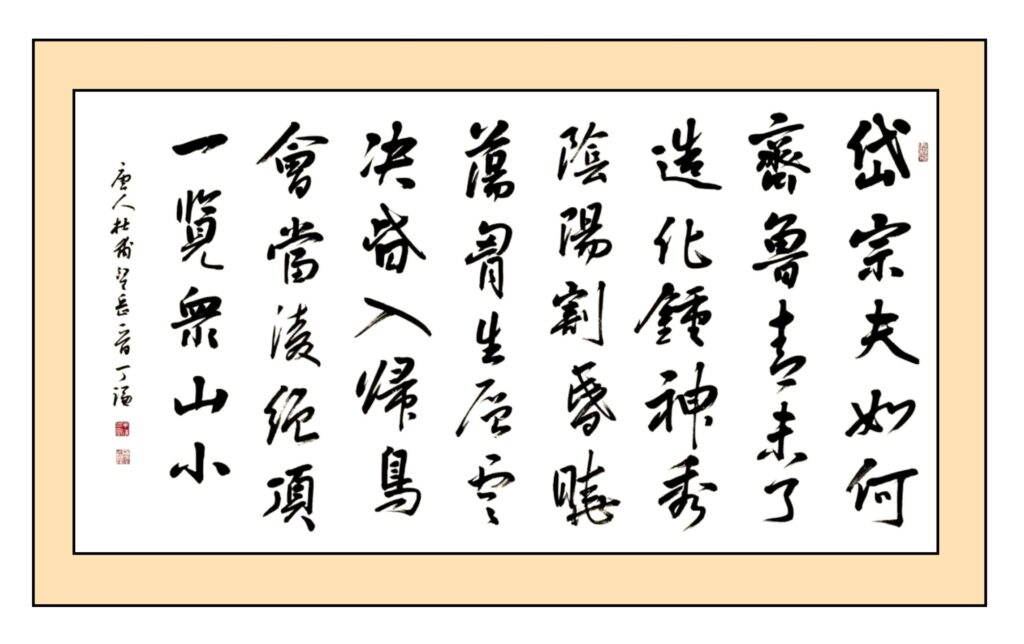 岱宗夫如何
齊魯青未了
造化鍾神秀
陰陽割昏曉
蕩胷生層雲
决眥入帰鳥
會當凌絶頂
一覧衆山小
唐人杜甫望岳一首 丁